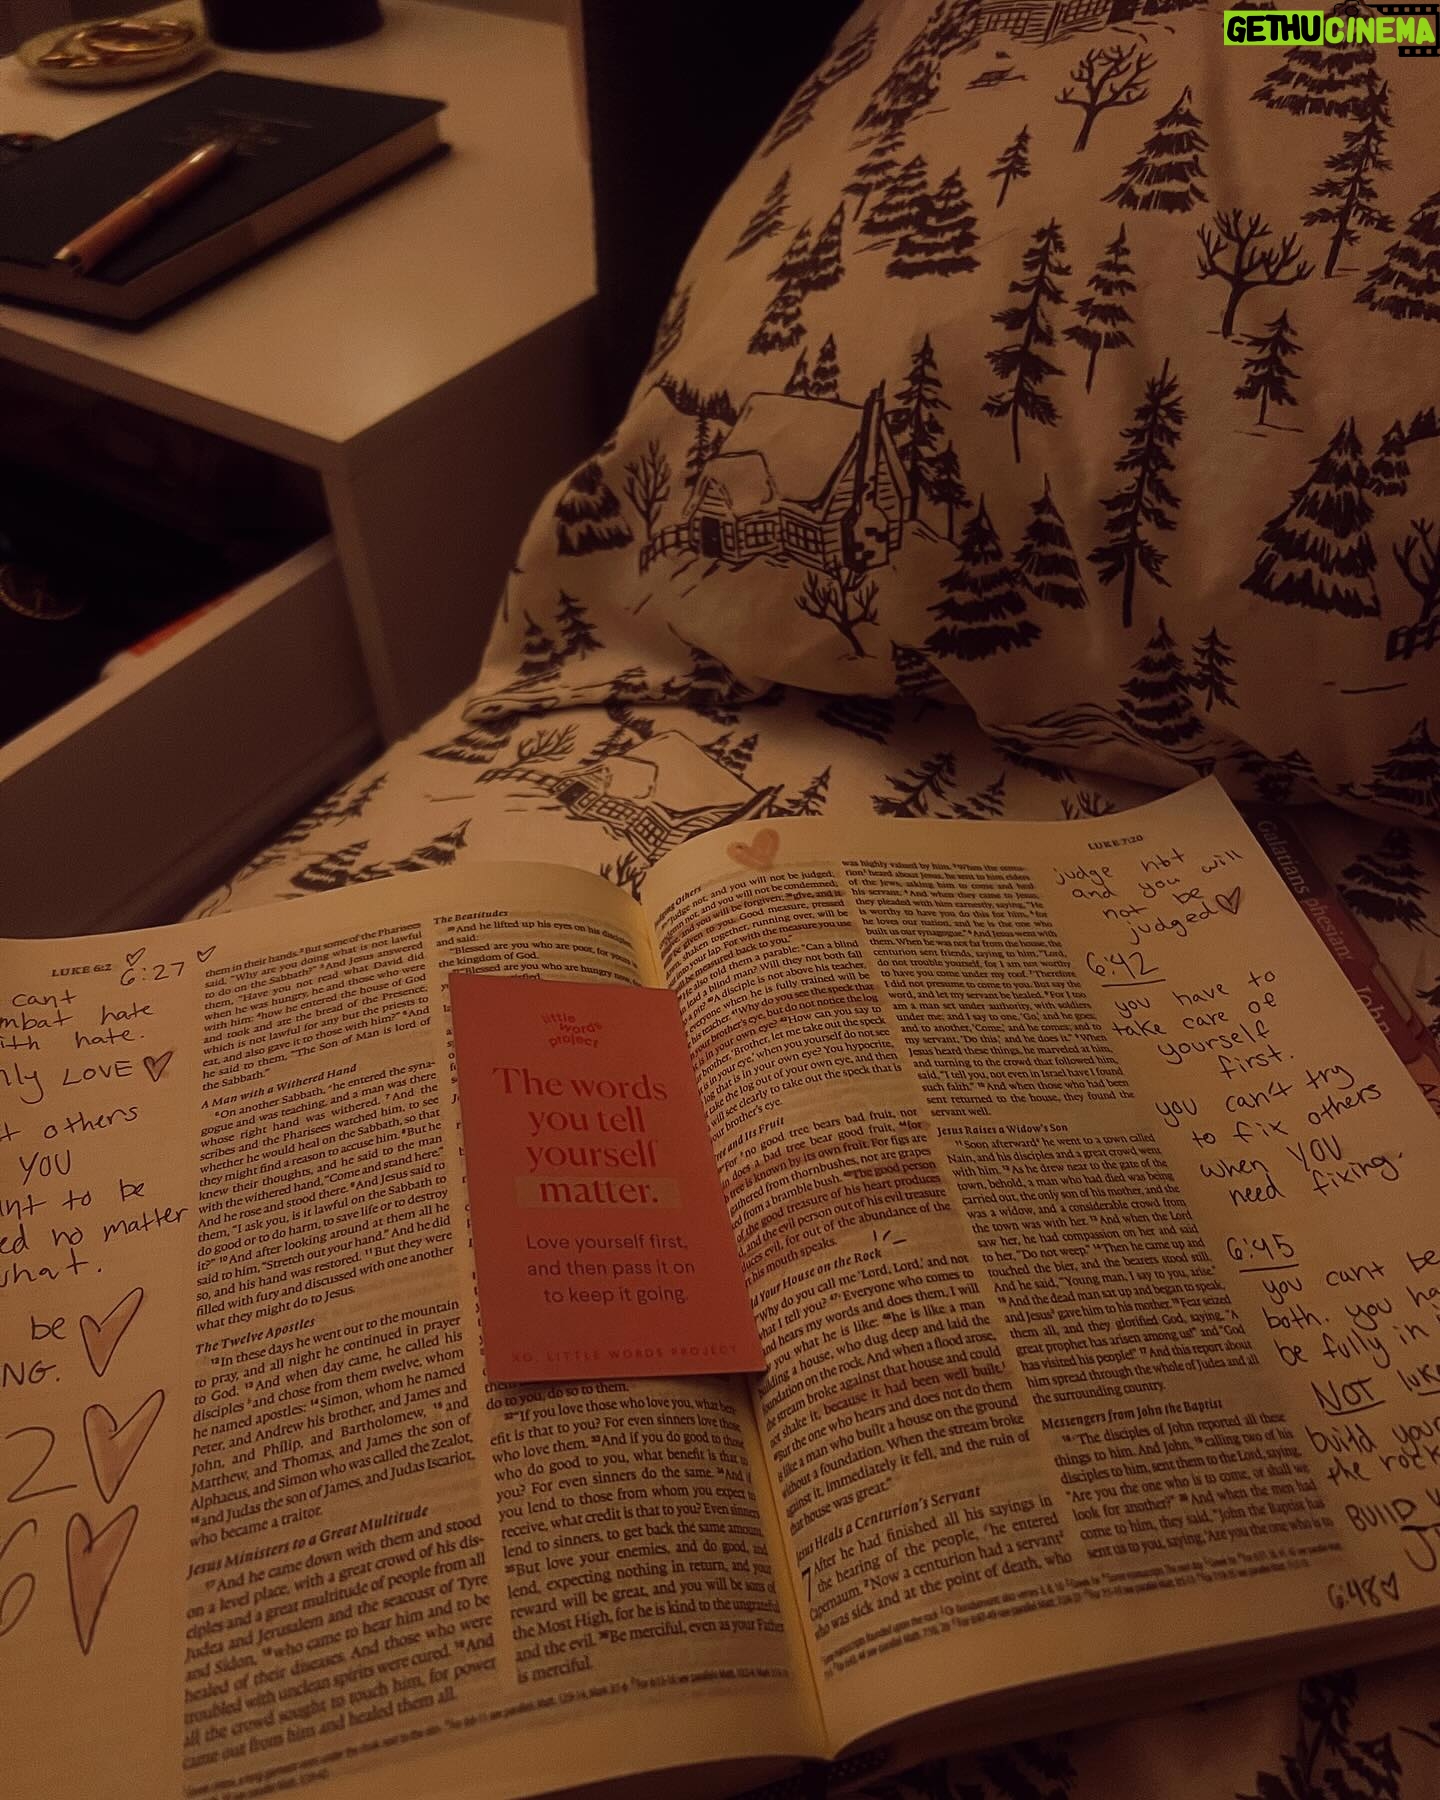 GETHUCINEMA
LUKE 6:2
6:27
cant
hate
hate.
LOVE
others
YOU
to be
no matter
be
them in their hands. ²But some of the Pharisees
said, "Why are you doing what is not lawful
to do on the Sabbath?" ³And Jesus answered
them, "Have you not read what David did
when he was hungry, he and those who were
with him: ⁴how he entered the house of God
and took and ate the bread of the Presence,
which is not lawful for any but the priests to
eat, and also gave it to those with him?" ⁵And
he said to them, "The Son of Man is lord of
the Sabbath."
A Man with a Withered Hand
⁶On another Sabbath, he entered the syna-
gogue and was teaching, and a man was there
whose right hand was withered. ⁷And the
scribes and the Pharisees watched him, to see
whether he would heal on the Sabbath, so that
they might find a reason to accuse him. ⁸But he
knew their thoughts, and he said to the man
with the withered hand, "Come and stand here."
And he rose and stood there. ⁹And Jesus said to
them, "I ask you, is it lawful on the Sabbath to
do good or to do harm, to save life or to destroy
it?" ¹⁰And after looking around at them all he
said to him, "Stretch out your hand." And he did
so, and his hand was restored. ¹¹But they were
filled with fury and discussed with one another
what they might do to Jesus.
The Twelve Apostles
¹²In these days he went out to the mountain
to pray, and all night he continued in prayer
to God. ¹³And when day came, he called his
disciples and chose from them twelve, whom
he named apostles: ¹⁴Simon, whom he named
Peter, and Andrew his brother, and James and
John, and Philip, and Bartholomew, ¹⁵and
Matthew, and Thomas, and James the son of
Alphaeus, and Simon who was called the Zealot,
¹⁶and Judas the son of James, and Judas Iscariot,
who became a traitor.
Jesus Ministers to a Great Multitude
¹⁷And he came down with them and stood
on a level place, with a great crowd of his dis-
ciples and a great multitude of people from all
Judea and Jerusalem and the seacoast of Tyre
and Sidon, ¹⁸who came to hear him and to be
healed of their diseases. And those who were
troubled with unclean spirits were cured. ¹⁹And
all the crowd sought to touch him, for power
came out from him and healed them all.
The Beatitudes
²⁰And he lifted up his eyes on his disciples,
and said:
"Blessed are you who are poor, for yours is
the kingdom of God.
"Blessed are you who are hungry now,
little
words
project
The words
you tell
yourself
matter.
Love yourself first,
and then pass it on
to keep it going.
XO, LITTLE WORDS PROJECT
do to you, do so to them.
³²"If you love those who love you, what ben-
efit is that to you? For even sinners love those
who love them. ³³And if you do good to those
who do good to you, what benefit is that to
you? For even sinners do the same. ³⁴And if
you lend to those from whom you expect to
receive, what credit is that to you? Even sinners
lend to sinners, to get back the same amount.
³⁵But love your enemies, and do good, and
lend, expecting nothing in return, and your
reward will be great, and you will be sons of
the Most High, for he is kind to the ungrateful
and the evil. ³⁶Be merciful, even as your Father
is merciful.
Others
"Judge not, and you will not be judged;
not, and you will not be condemned;
and you will be forgiven; ³⁸give, and it
will be given to you. Good measure, pressed
shaken together, running over, will be
your lap. For with the measure you use
will be measured back to you."
He also told them a parable: "Can a blind
lead a blind man? Will they not both fall
A disciple is not above his teacher,
everyone when he is fully trained will be
his teacher. ⁴¹Why do you see the speck that
your brother's eye, but do not notice the log
is in your own eye? ⁴²How can you say to
brother, 'Brother, let me take out the speck
is in your eye,' when you yourself do not see
log that is in your own eye? You hypocrite,
take the log out of your own eye, and then
will see clearly to take out the speck that is
your brother's eye.
and Its Fruit
"For no good tree bears bad fruit, nor
does a bad tree bear good fruit, ⁴⁴for
tree is known by its own fruit. For figs are
gathered from thornbushes, nor are grapes
from a bramble bush. ⁴⁵The good person
of the good treasure of his heart produces
and the evil person out of his evil treasure
evil, for out of the abundance of the
his mouth speaks.
Your House on the Rock
"Why do you call me 'Lord, Lord,' and not
what I tell you? ⁴⁷Everyone who comes to
and hears my words and does them, I will
you what he is like: ⁴⁸he is like a man
building a house, who dug deep and laid the
foundation on the rock. And when a flood arose,
the stream broke against that house and could
not shake it, because it had been well built.
⁴⁹But the one who hears and does not do them
is like a man who built a house on the ground
without a foundation. When the stream broke
against it, immediately it fell, and the ruin of
that house was great."
Jesus Heals a Centurion's Servant
7 After he had finished all his sayings in
the hearing of the people, he entered
Capernaum. ²Now a centurion had a servant
who was sick and at the point of death, who
LUKE 7:20
was highly valued by him. ³When the centu-
rion heard about Jesus, he sent to him elders
of the Jews, asking him to come and heal
his servant. ⁴And when they came to Jesus,
they pleaded with him earnestly, saying, "He
is worthy to have you do this for him, ⁵for
he loves our nation, and he is the one who
built us our synagogue." ⁶And Jesus went with
them. When he was not far from the house, the
centurion sent friends, saying to him, "Lord,
do not trouble yourself, for I am not worthy
to have you come under my roof. ⁷Therefore
I did not presume to come to you. But say the
word, and let my servant be healed. ⁸For I too
am a man set under authority, with soldiers
under me: and I say to one, 'Go,' and he goes;
and to another, 'Come,' and he comes; and to
my servant, 'Do this,' and he does it." ⁹When
Jesus heard these things, he marveled at him,
and turning to the crowd that followed him,
said, "I tell you, not even in Israel have I found
such faith." ¹⁰And when those who had been
sent returned to the house, they found the
servant well.
Jesus Raises a Widow's Son
¹¹Soon afterward he went to a town called
Nain, and his disciples and a great crowd went
with him. ¹²As he drew near to the gate of the
town, behold, a man who had died was being
carried out, the only son of his mother, and she
was a widow, and a considerable crowd from
the town was with her. ¹³And when the Lord
saw her, he had compassion on her and said
to her, "Do not weep." ¹⁴Then he came up and
touched the bier, and the bearers stood still.
And he said, "Young man, I say to you, arise."
¹⁵And the dead man sat up and began to speak,
and Jesus gave him to his mother. ¹⁶Fear seized
them all, and they glorified God, saying, "A
great prophet has arisen among us!" and "God
has visited his people!" ¹⁷And this report about
him spread through the whole of Judea and all
the surrounding country.
Messengers from John the Baptist
¹⁸The disciples of John reported all these
things to him. And John, ¹⁹calling two of his
disciples to him, sent them to the Lord, saying,
"Are you the one who is to come, or shall we
look for another?" ²⁰And when the men had
come to him, they said, "John the Baptist has
sent us to you, saying, 'Are you the one who is to
judge not
and you will
not be
judged
6:42
you have to
take care of
yourself
first.
you can't try
to fix others
when YOU
need fixing.
6:45
you cant be
both. you
be fully in
NOT
build your
the rock
BUILD
6:48
Galatians
John